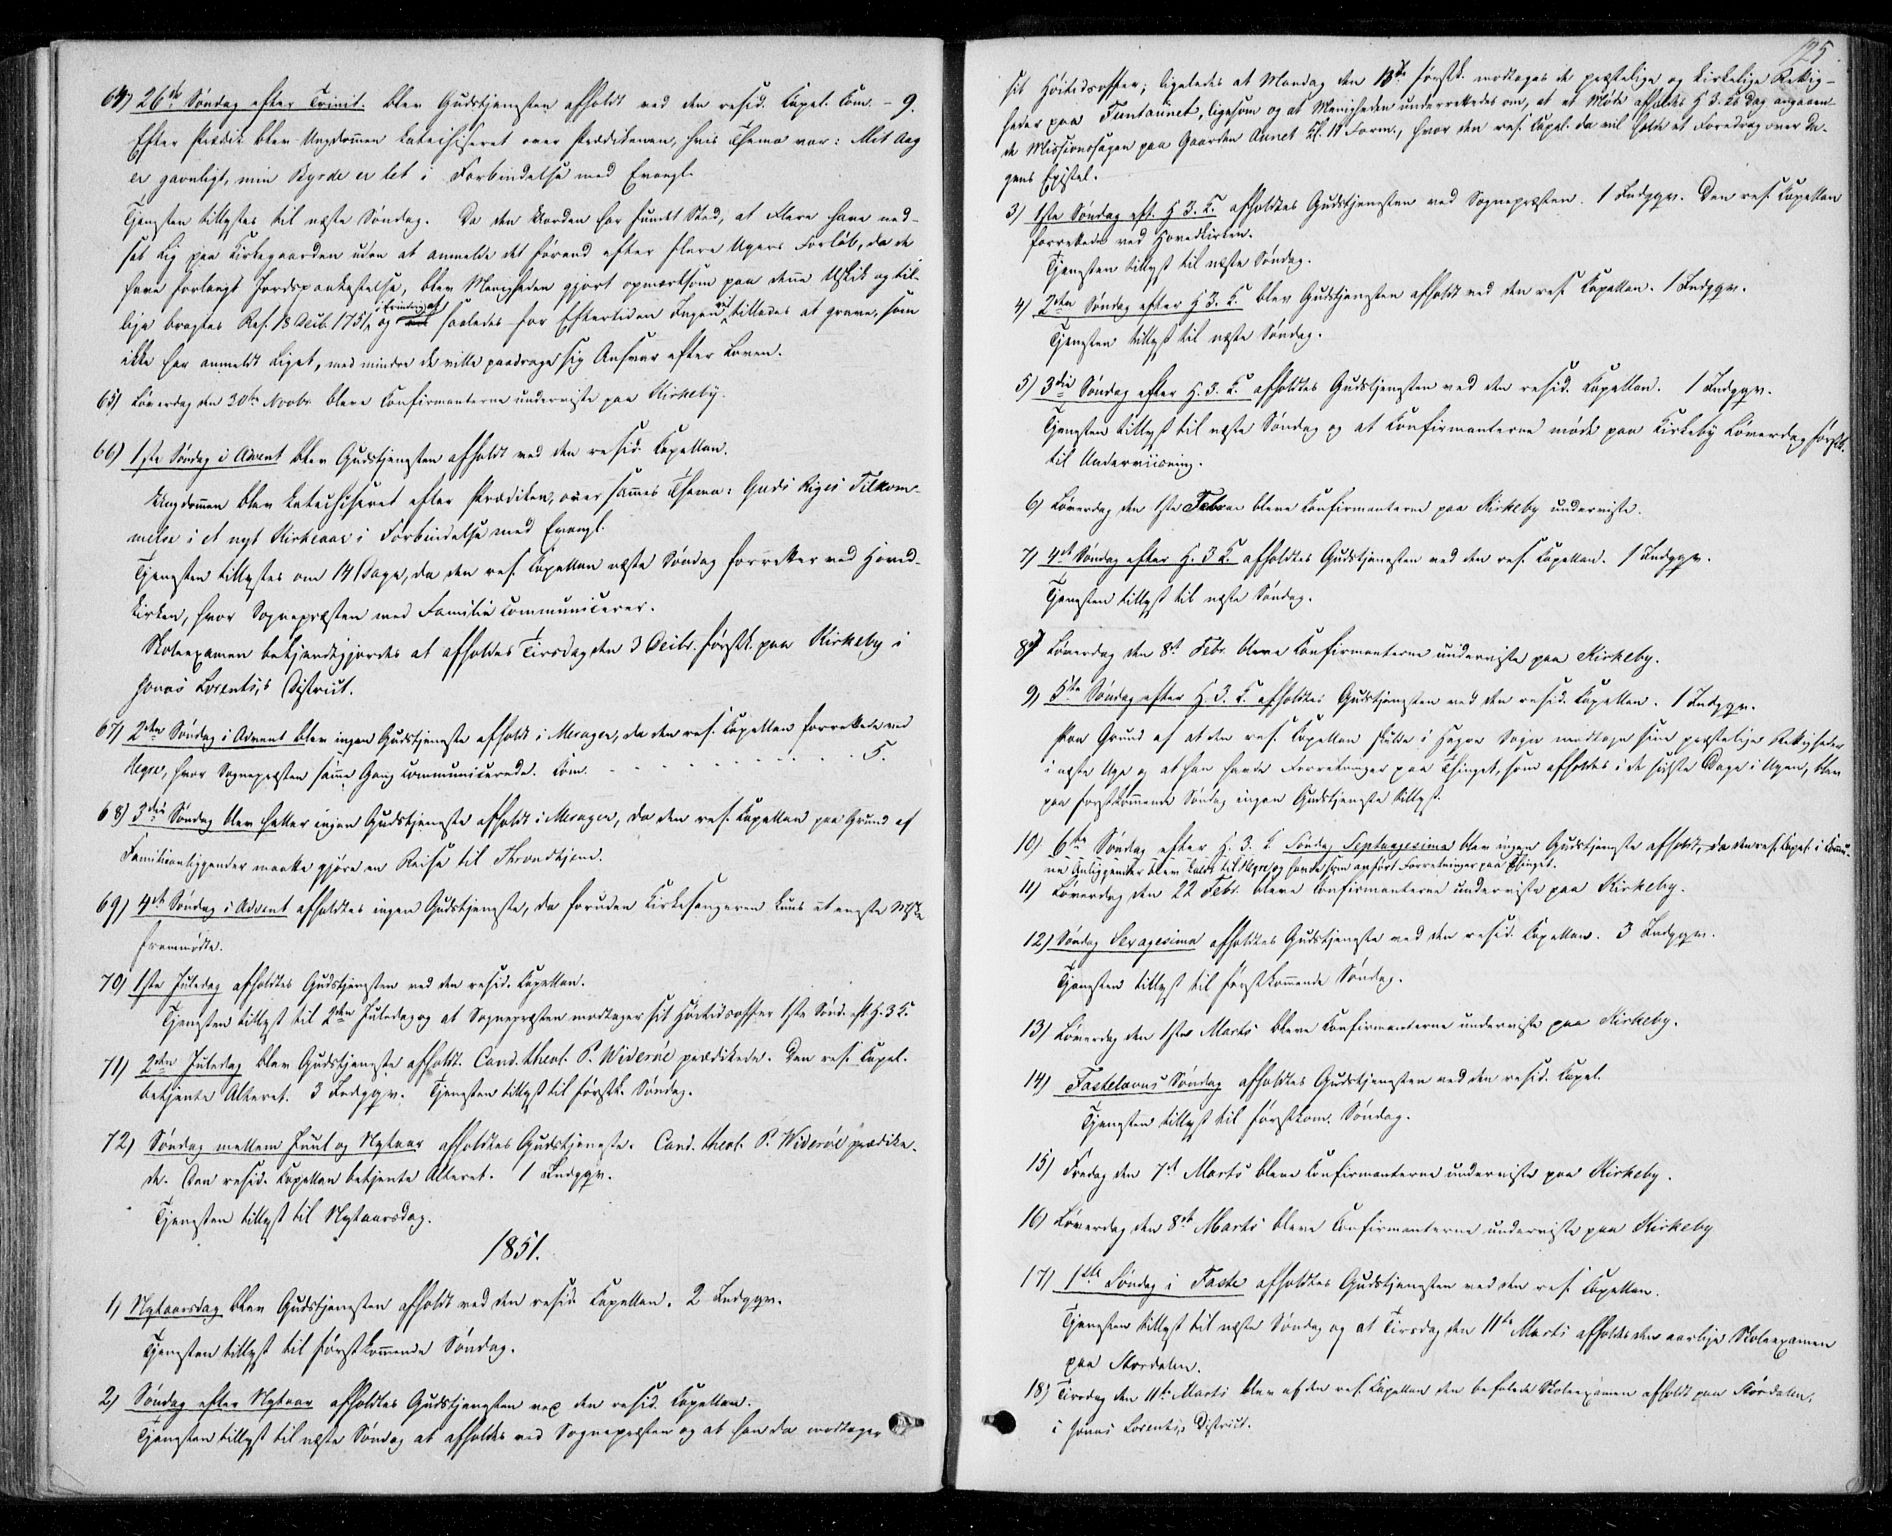 64) 26de Søndag efter Trinit. blev Gudstjenesten afholdt ved den resid. Capel. Com. – 9.
Efter Prædik blev Ungdommen katechiseret over Prædikenen, hvis Thema var: Mit Aag
er gavnligt, min Byrde er let i Forbindelse med Evangl.
Tjenesten tillystes til næste Søndag. Da den Uorden har fundet Sted, at Flere have ned-
sat Lig paa Kirkegaarden uden at anmelde det førend efter flere Ugers Forløb, da de
have forlangt Jordspaakastelse, blev Menigheden gjort opmærksom paa denne Uskik og til-
lige bragtes Res. 18 Decb. 1751 i Erindring, og at saaledes for Eftertiden Ingen vil tillades at grave, som
ikke har anmeldt Liget, med mindre de ville paadrage sig Ansvar efter Loven.
65) Løverdag den 30te Novbr. bleve Confirmanterne underviste paa Kirkeby.
66) 1ste Søndag i Advent blev Gudstjenesten afholdt ved den resid. Capellan.
Ungdommen blev katechiseret efter Prædiken, over sammes Thema: Guds Riges Tilkom-
melse i et nyt Kirkeaar i Forbindelse med Evangl.
Tjenesten tillystes om 14 Dage, da den res. Capellan næste Søndag forretter ved Hoved-
kirken, hvor Sognepræsten med Familie communicerer.
Skoleexamen bekjendtgjordes at afholdes Tirsdag den 3 Decbr. førstk. paa Kirkeby i
Jonas Lorentsis District.
67) 2den Søndag i Advent blev ingen Gudstjeneste afholdt i Meragor, da den res. Capellan forrettede ved
Hegre, hvor Sognepræsten samme Gang communicerede. Com. . . . . . . . . 5.
68) 3die Søndag blev heller ingen Gudstjeneste afholdt i Meragor, da den res. Capellan paa Grund af
Familieanliggender maatte gjøre en Reise til Throndhjem.
69) 4de Søndag i Advent afholdtes ingen Gudstjeneste, da foruden Kirkesangeren kuns et eneste Mske
fremmødte.
70) 1ste Juledag afholdtes Gudstjenesten ved den resid. Capellan.
Tjenesten tillyst til 2den Juledag og at Sognepræsten modtager sit Høitidsoffer 1ste Sønd. eft H. 3 K.
71) 2den Juledag blev Gudstjeneste afholdt. Cand. theol. P. Widerøe prædikede. Den res. Capel.
betjente Alteret. 3 Indgqv. Tjenesten tillyst til førstk. Søndag.
72) Søndag mellem Juul og Nytaar afholdtes Gudstjeneste. Cand. theol. P. Widerøe prædike-
de. Den resid. Capellan betjente Alteret. 1 Indgqv.
Tjenesten tillyst til Nytaarsdag.
1851.
1) Nytaarsdag blev Gudstjenesten afholdt ved den resid. Capellan. 2 Indgqv.
Tjenesten tillyst til førstkommende Søndag.
2) Søndag efter Nytaar afholdtes Gudstjenesten ved den resid. Capellan.
Tjenesten tillyst til næste Søndag at afholdes ved Sognepræsten og at han da modtager
125.
sit Høitidsoffer; ligeledes at Mandag den 13de førstk. modtages de præstelige og kirkelige Rettig-
heder paa Funtaunet, ligesom og at Menigheden underrettedes om, at et Møde afholdes H. 3. K. Dag angaaen-
de Missionssagen paa Gaarden Aunet Kl. 11 Form., hvor den res. Capel. da vil holde et Foredrag over Da-
gens Epistel.
3) 1ste Søndag eft. H. 3. K. afholdtes Gudstjenesten ved Sognepræsten. 1 Indgqv. Den res. Capellan
forrettede ved Hovedkirken.
Tjenesten tillyst til næste Søndag.
4) 2den Søndag efter H. 3. K. blev Gudstjenesten afholdt ved den res. Capellan. 1 Indgqv.
Tjenesten tillyst til næste Søndag.
5) 3die Søndag efter H. 3. K. afholdtes Gudstjenesten ved den resid. Capellan. 1 Indgqv.
Tjenesten tillyst til næste Søndag og at Confirmanterne møde paa Kirkeby Løverdag førstk.
til Underviisning.
6) Løverdag den 1ste Februar bleve Confirmanterne paa Kirkeby underviste.
7) 4de Søndag efter H. 3 K. afholdtes Gudstjenesten ved den res. Capellan. 1 Indgqv.
Tjenesten tillyst til næste Søndag.
8) Løverdag den 8de Febr. bleve Confirmanterne underviste paa Kirkeby.
9) 5te Søndag efter H. 3. K. afholdtes Gudstjenesten ved den resid. Capellan. 1 Indgqv.
Paa Grund af at den res. Capellan skulle i Hegre Sogn modtage sine præstelige Rettigheder
i næste Uge og at han havde Forretninger paa Thinget, som afholdes i de sidste Dage i Ugen, blev
paa førstkommende Søndag ingen Gudstjeneste tillyst.
10) 6te Søndag efter H. 3. K. Søndag Septuagesima blev ingen Gudstjeneste afholdt, da den res. Capel. i Commu-
ne Anliggender blev kaldt til Hegre og havde som anført Forretninger paa Thinget.
11) Løverdag den 22 Febr. bleve Confirmanterne underviste paa Kirkeby.
12) Søndag Sexagesima afholdtes Gudstjeneste ved den resid. Capellan. 3 Indgqv.
Tjenesten tillyst til førstkommende Søndag.
13) Løverdag den 1ste Marts bleve Confirmanterne underviste paa Kirkeby.
14) Fastelavns Søndag afholdtes Gudstjenesten ved den resid. Capel.
Tjenesten tillyst til førstkom. Søndag.
15) Fredag den 7de Marts bleve Confirmanterne underviste paa Kirkeby.
16) Løverdag den 8de Marts bleve Confirmanterne underviste paa Kirkeby
17) 1ste Søndag i Faste afholdtes Gudstjenesten ved den res. Capellan.
Tjenesten tillyst til næste Søndag og at Tirsdag den 11te Marts afholdes den aarlige Skoleexamen
paa Størdalen.
18) Tirsdag den 11te Marts blev af den res. Capellan den befalede Skoleexamen afholdt paa Størdalen,
i Jonas Lorentsis District.